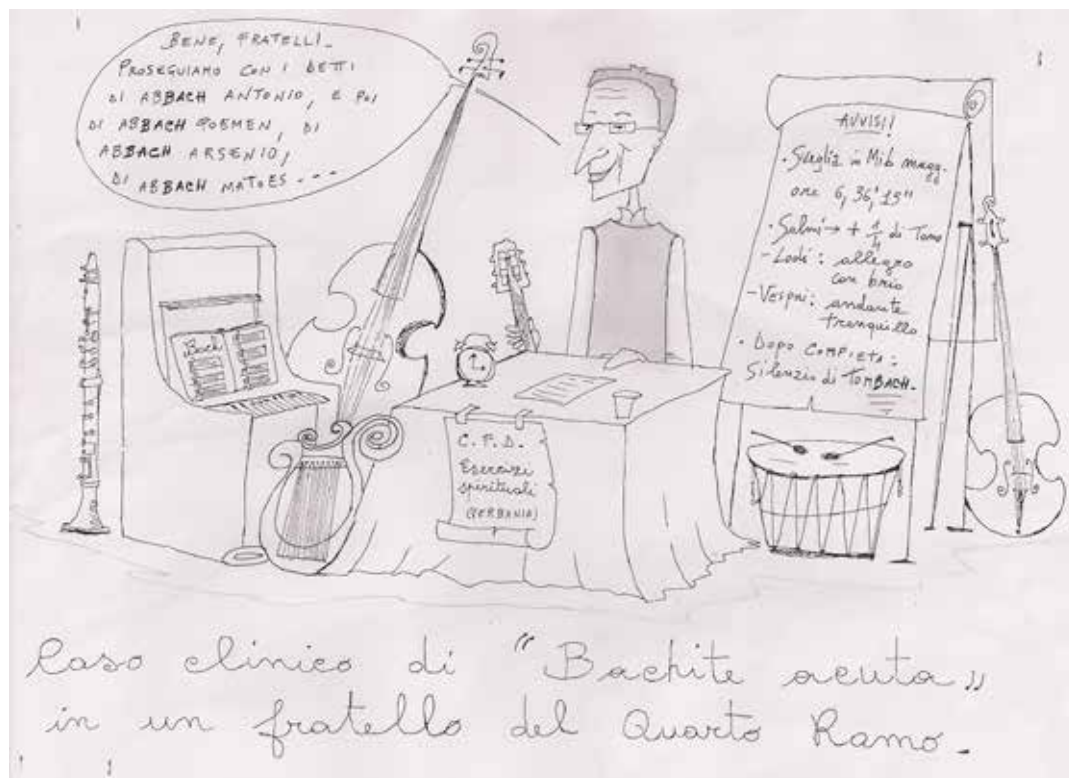 BENE, FRATELLI.
PROSEGUIAMO CON I DETTI
DI ABBACH ANTONIO, E POI
DI ABBACH POEMEN, DI
ABBACH ARSENIO,
DI ABBACH MATOES - - -
Bach
C.P.D.
Esercizi
spirituali
(VERBANIA)
AVVISI!
• Sveglia in Mib magg.
ore 6, 36,' 15"
• Salmi → + 1/4 di Tono
- Lodi: allegro
con brio
- Vespri: andante
tranquillo
• Dopo COMPIETA:
Silenzio di TOMBACH.
Caso clinico di "Bachite acuta"
in un fratello del Quarto Ramo.